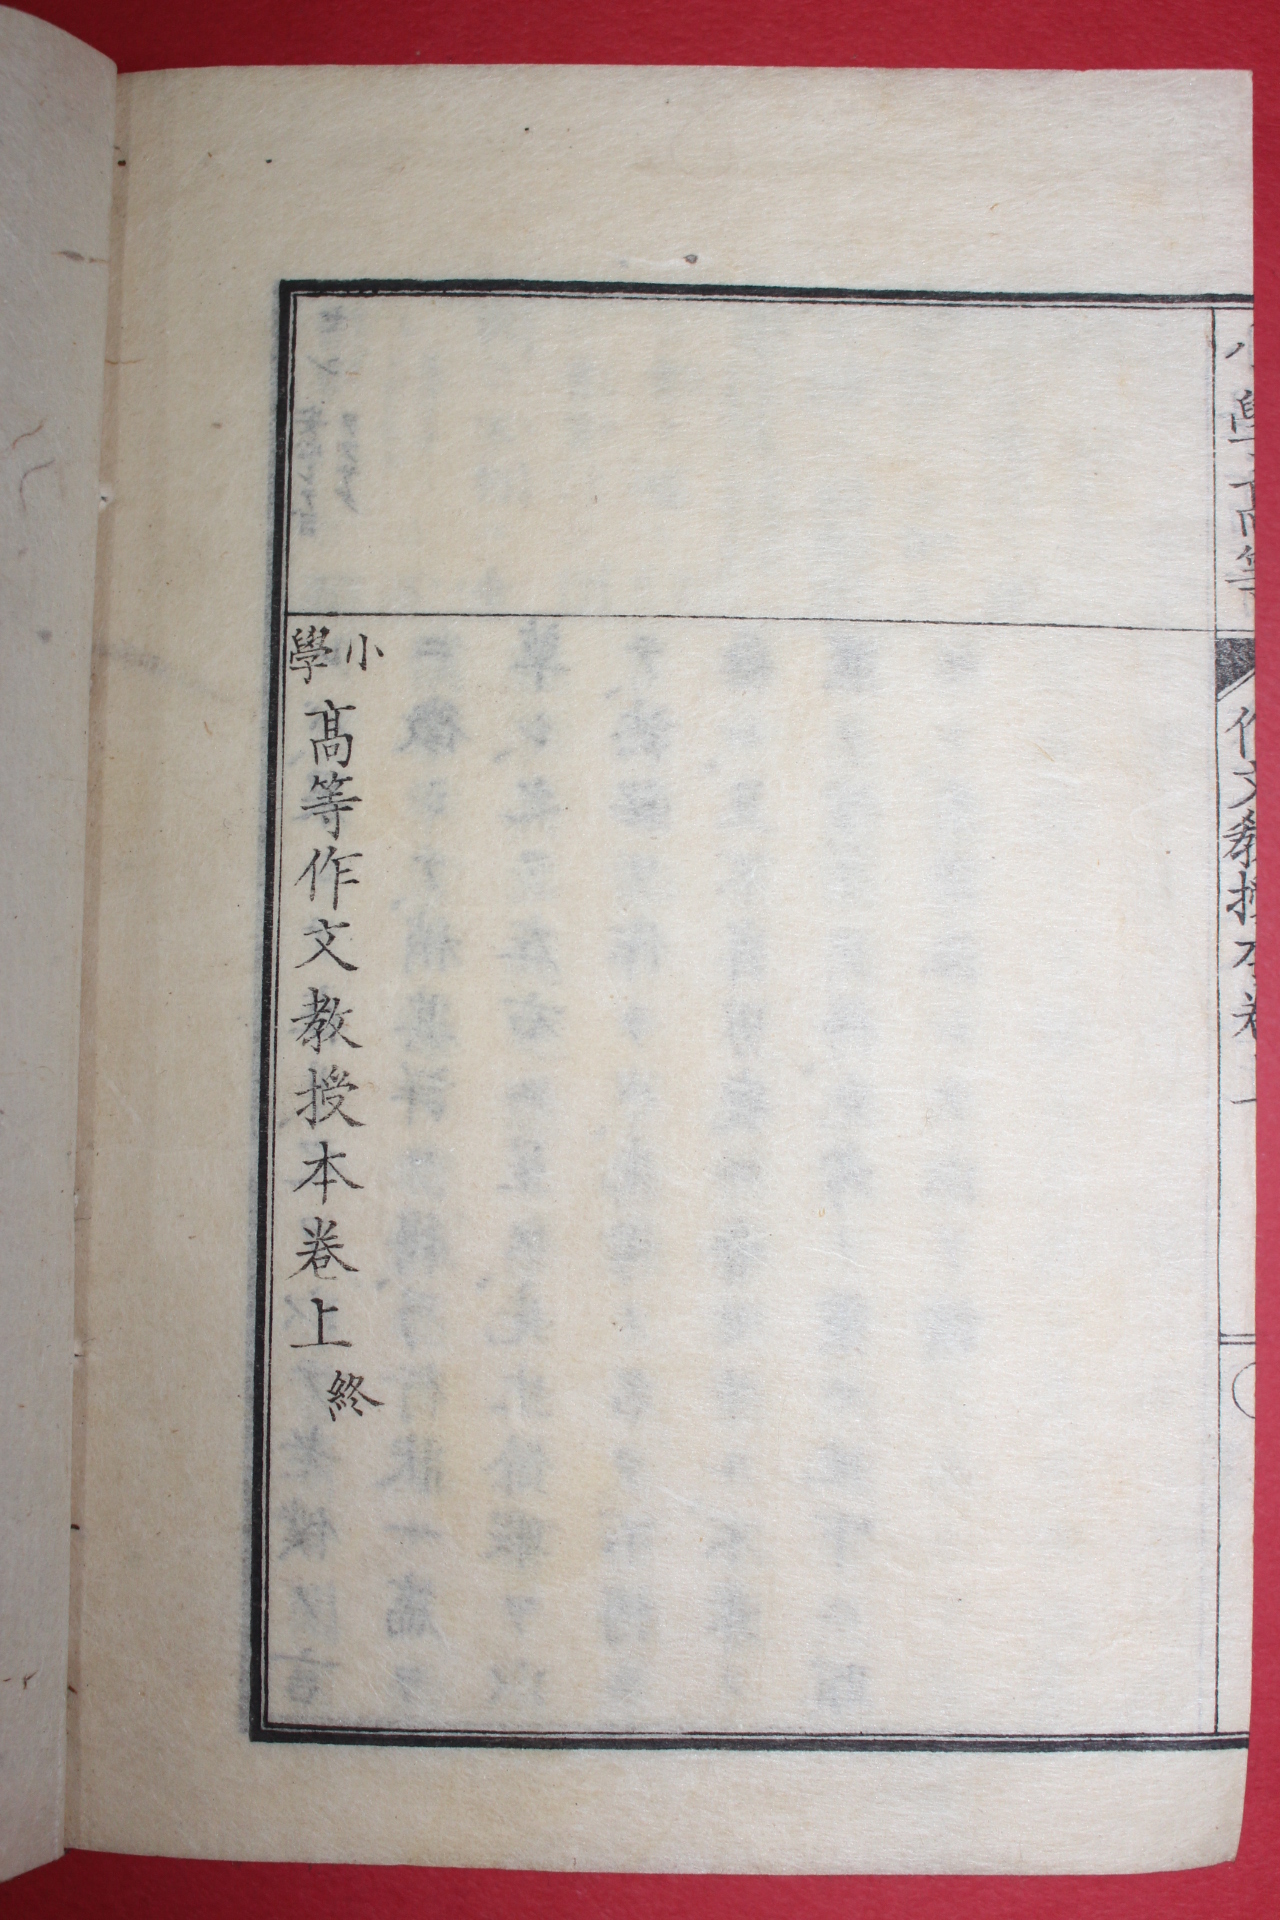 小學高等 作文教授本卷上
小學高等作文教授本卷上終